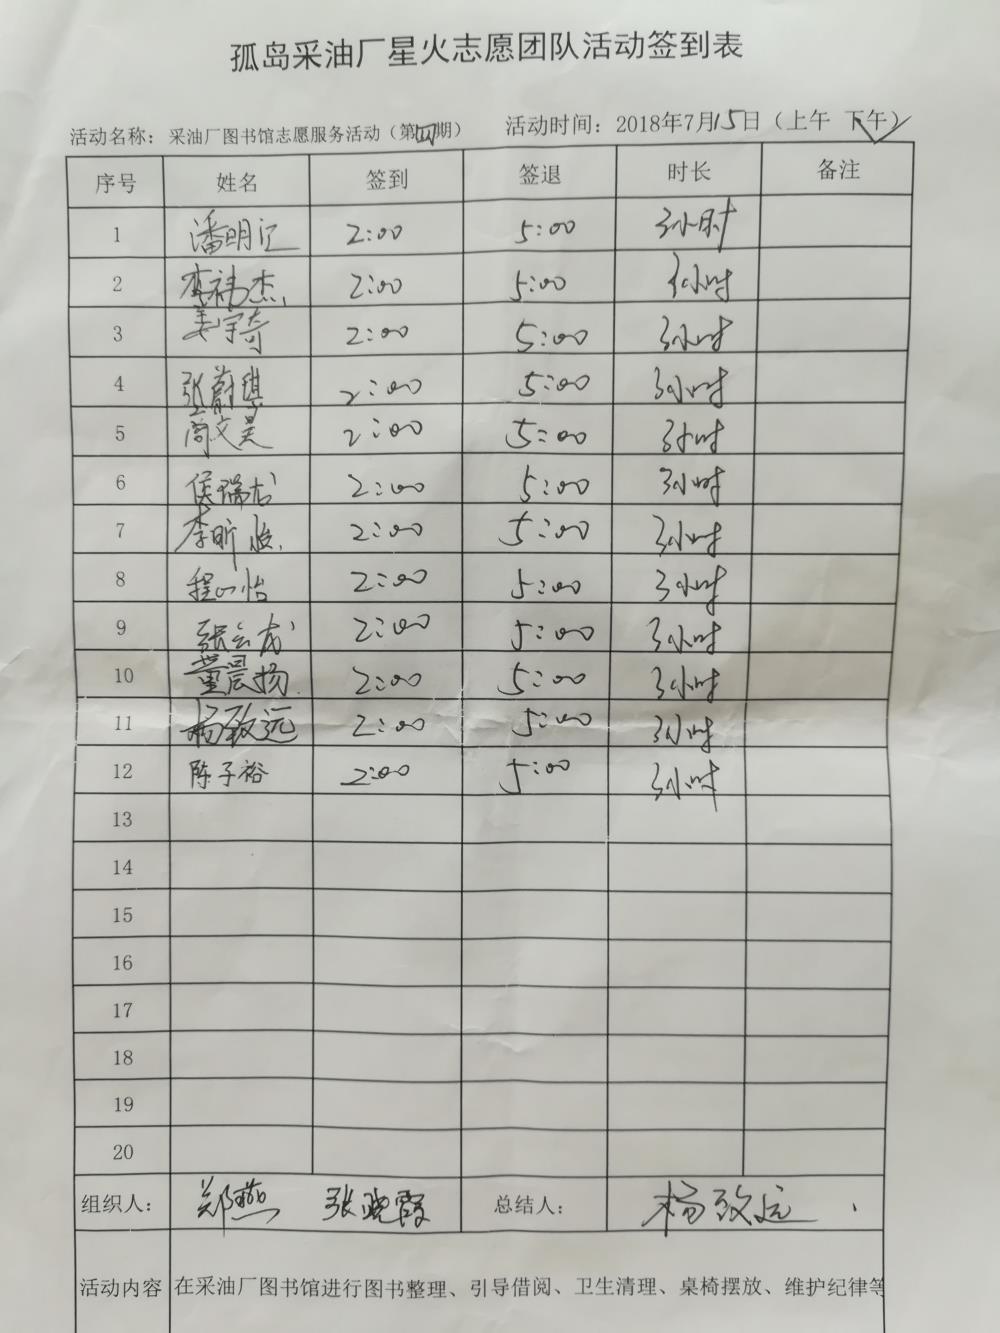 孤岛采油厂星火志愿团队活动签到表
活动名称：采油厂图书馆志愿服务活动（第四期） 活动时间：2018年7月15日（上午 下午）
序号 姓名 签到 签退 时长 备注
1 潘明 2:00 5:00 3小时
2 李祎杰 2:00 5:00 3小时
3 姜宇奇 2:00 5:00 3小时
4 张蔚琪 2:00 5:00 3小时
5 周文昊 2:00 5:00 3小时
6 侯瑞龙 2:00 5:00 3小时
7 李昕 2:00 5:00 3小时
8 程心怡 2:00 5:00 3小时
9 张云龙 2:00 5:00 3小时
10 董晨扬 2:00 5:00 3小时
11 杨致远 2:00 5:00 3小时
12 陈子裕 2:00 5:00 3小时
13
14
15
16
17
18
19
20
组织人： 郑燕 张晓霞 总结人： 杨致远
活动内容 在采油厂图书馆进行图书整理、引导借阅、卫生清理、桌椅摆放、维护纪律等